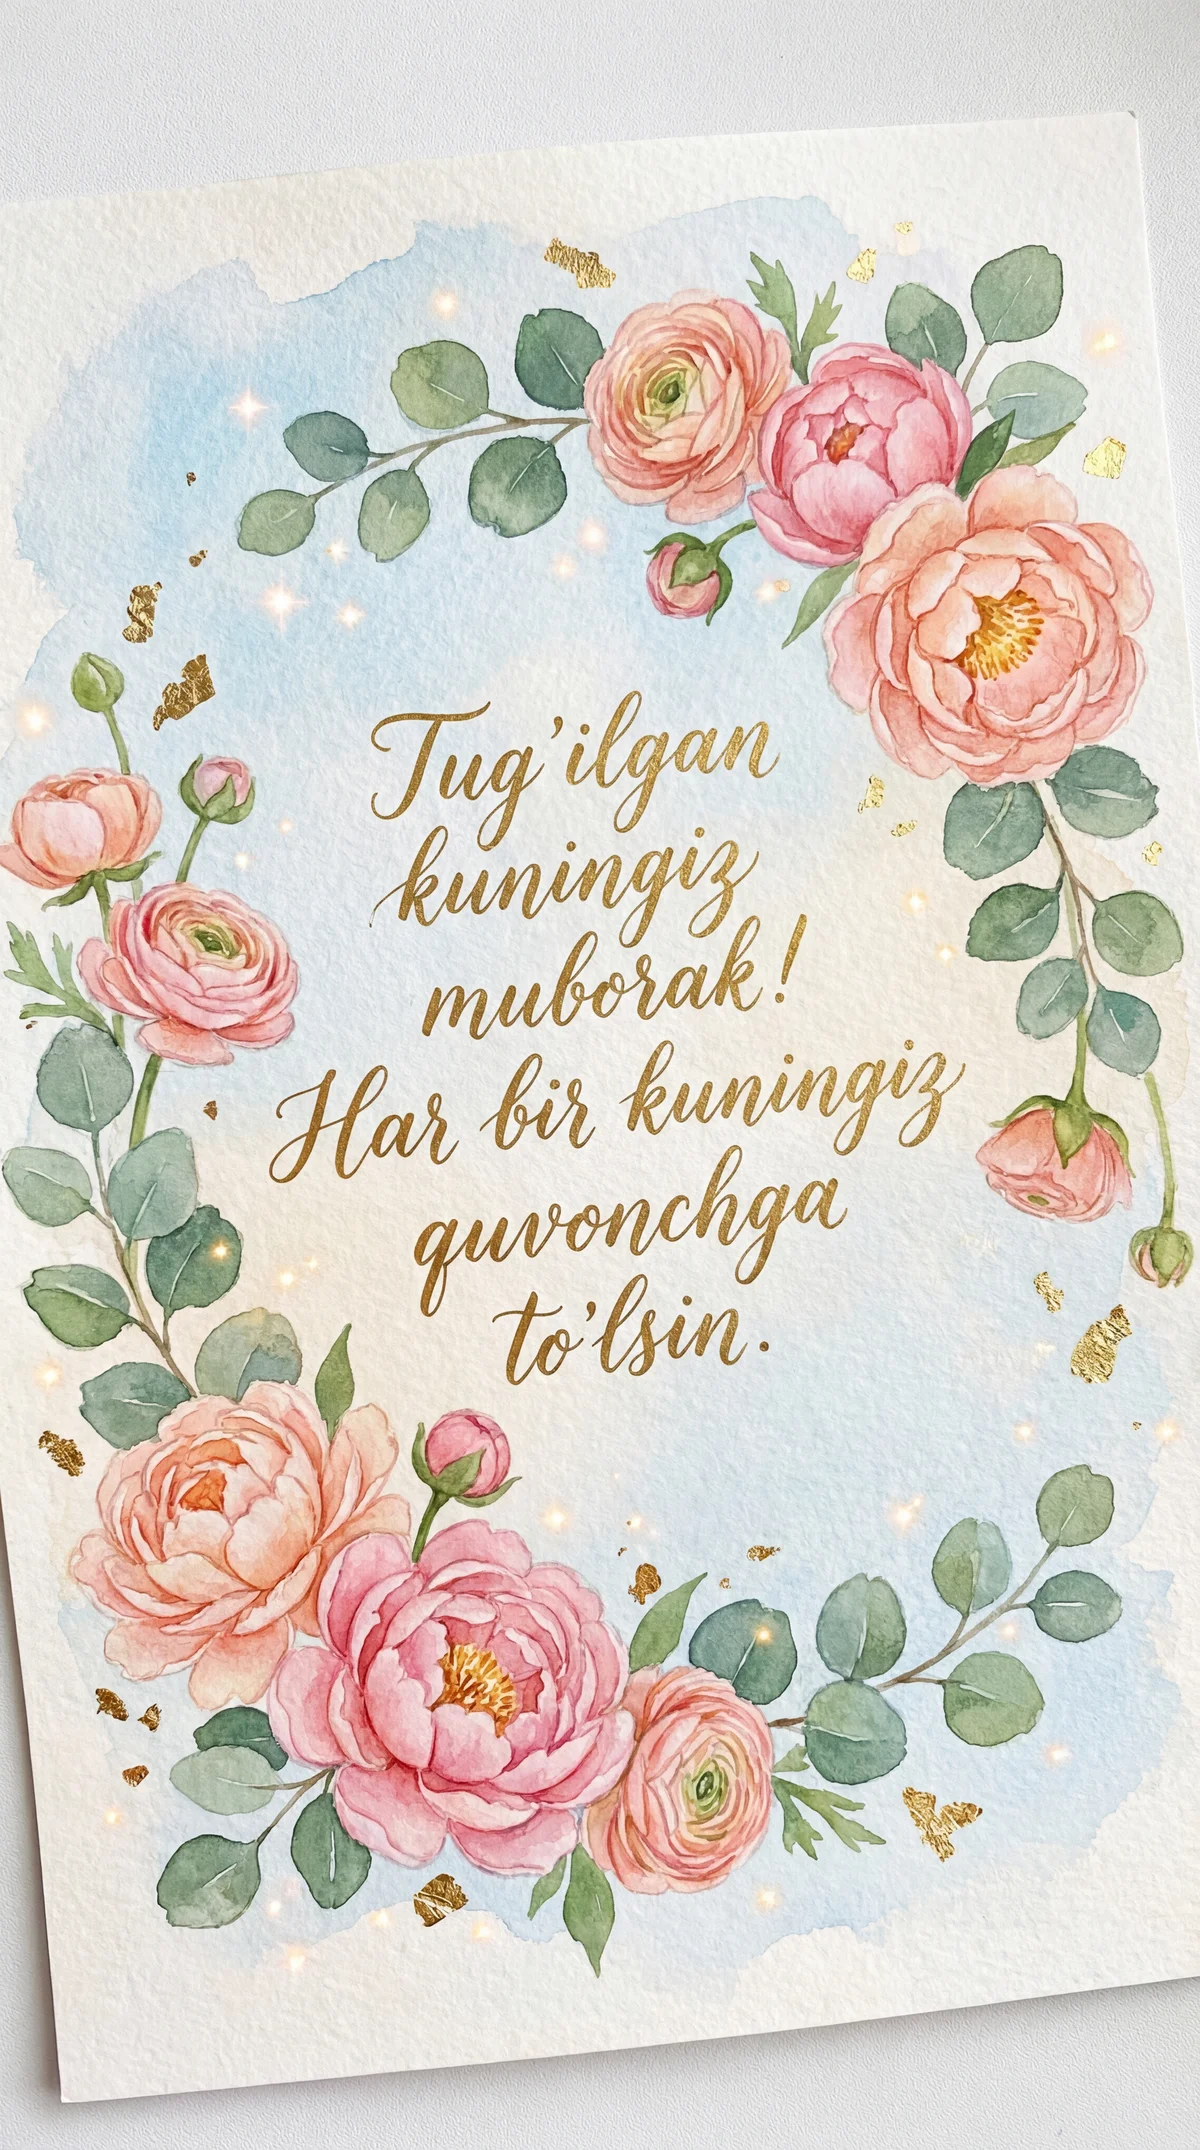 Tug’ilgan
kuningiz
muborak!
Har bir kuningiz
quvonchga
to’lsin.